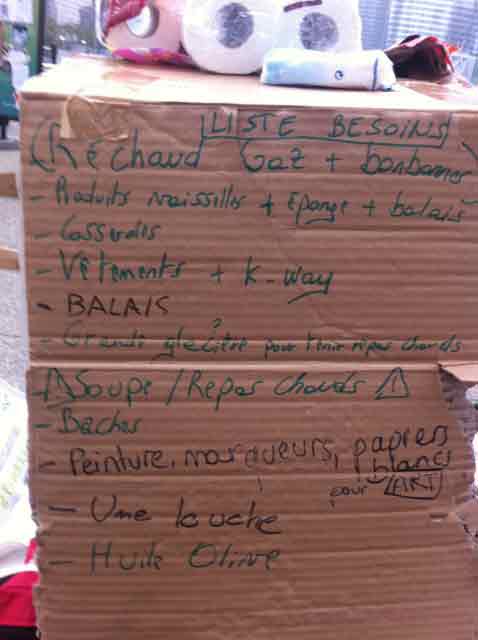 LISTE BESOINS
(Réchaud Gaz + bonbonnes)
- Produits vaisselles + éponge + balais
- Casseroles
- Vêtements + K-way
- BALAIS
- Grande glacière ? pour tenir repas chauds
- ⚠ Soupe / Repas chauds ⚠
- Baches
- Peinture, marqueurs, papiers blancs
pour ART
- Une louche
- Huile Olive